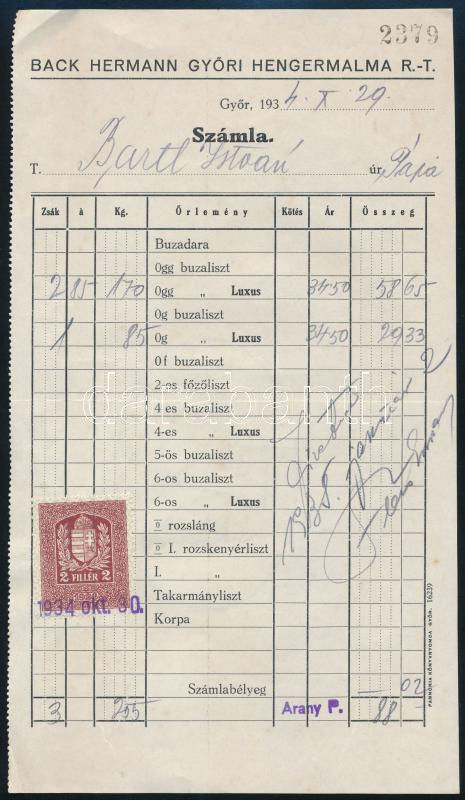 2379
BACK HERMANN GYŐRI HENGERMALMA R.-T.
Győr, 1934. X 29.
Számla.
T. Bartl István úr Pápa
Zsák à Kg. Őrlemény Kötés Ár Összeg
Buzadara
0gg buzaliszt
2 85 170 0gg „ Luxus 3450 58 65
0g buzaliszt
1 85 0g „ Luxus 3450 29 33
0f buzaliszt
2-es főzőliszt
4-es buzaliszt
4-es „ Luxus
5-ös buzaliszt
6-os „
6-os „ Luxus
0 rozsláng
0 I. rozskenyérliszt
I. „
Takarmányliszt
Korpa
Számlabélyeg — 02
3 255 Arany P. 88 —
2 FILLÉR 2
1934 OKT. 30.
1935. január 2
PANNÓNIA KÖNYVNYOMDA GYŐR. 16239
darabanth